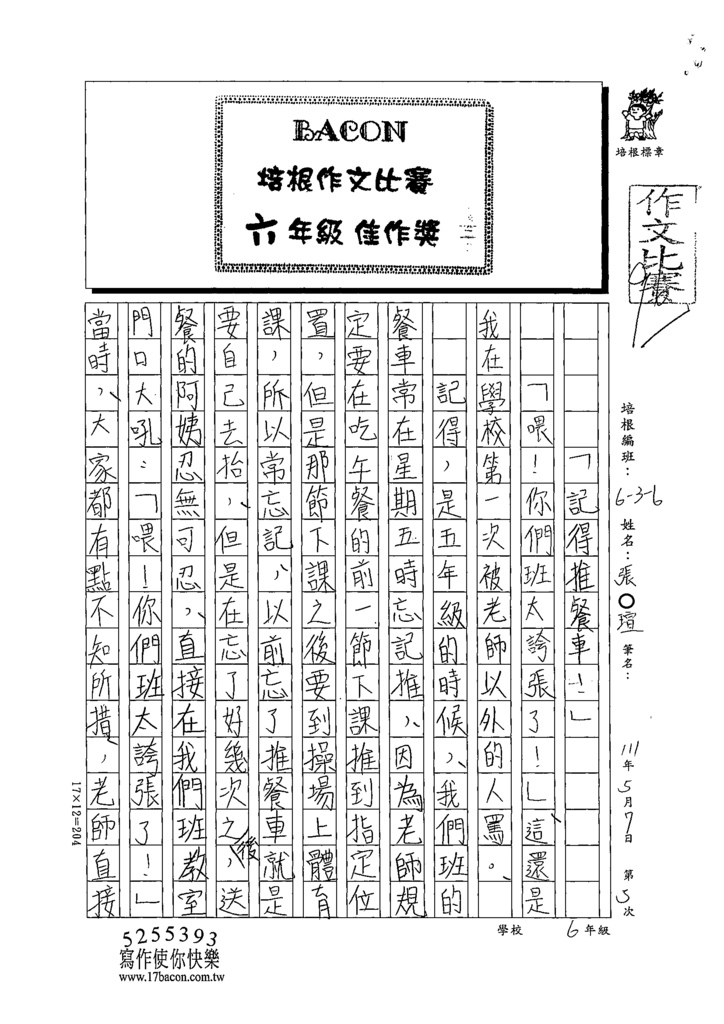 BACON
培根作文比賽
六年級 佳作獎
培根標章
作文比賽
培根編班：6-3-6 姓名：張○瑄 筆名： 111年5月7日 第5次
「記得推餐車！」
「喂！你們班太誇張了！」這還是
我在學校第一次被老師以外的人罵。
記得，是五年級的時候，我們班的
餐車常在星期五時忘記推，因為老師規
定要在吃午餐的前一節下課推到指定位
置，但是那節下課之後要到操場上體育
課，所以常忘記，以前忘了推餐車就是
要自己去抬，但是在忘了好幾次之後，送
餐的阿姨忍無可忍，直接在我們班教室
門口大吼：「喂！你們班太誇張了！」
當時，大家都有點不知所措，老師直接
17×12=204
學校 6年級
5255393
寫作使你快樂
www.17bacon.com.tw